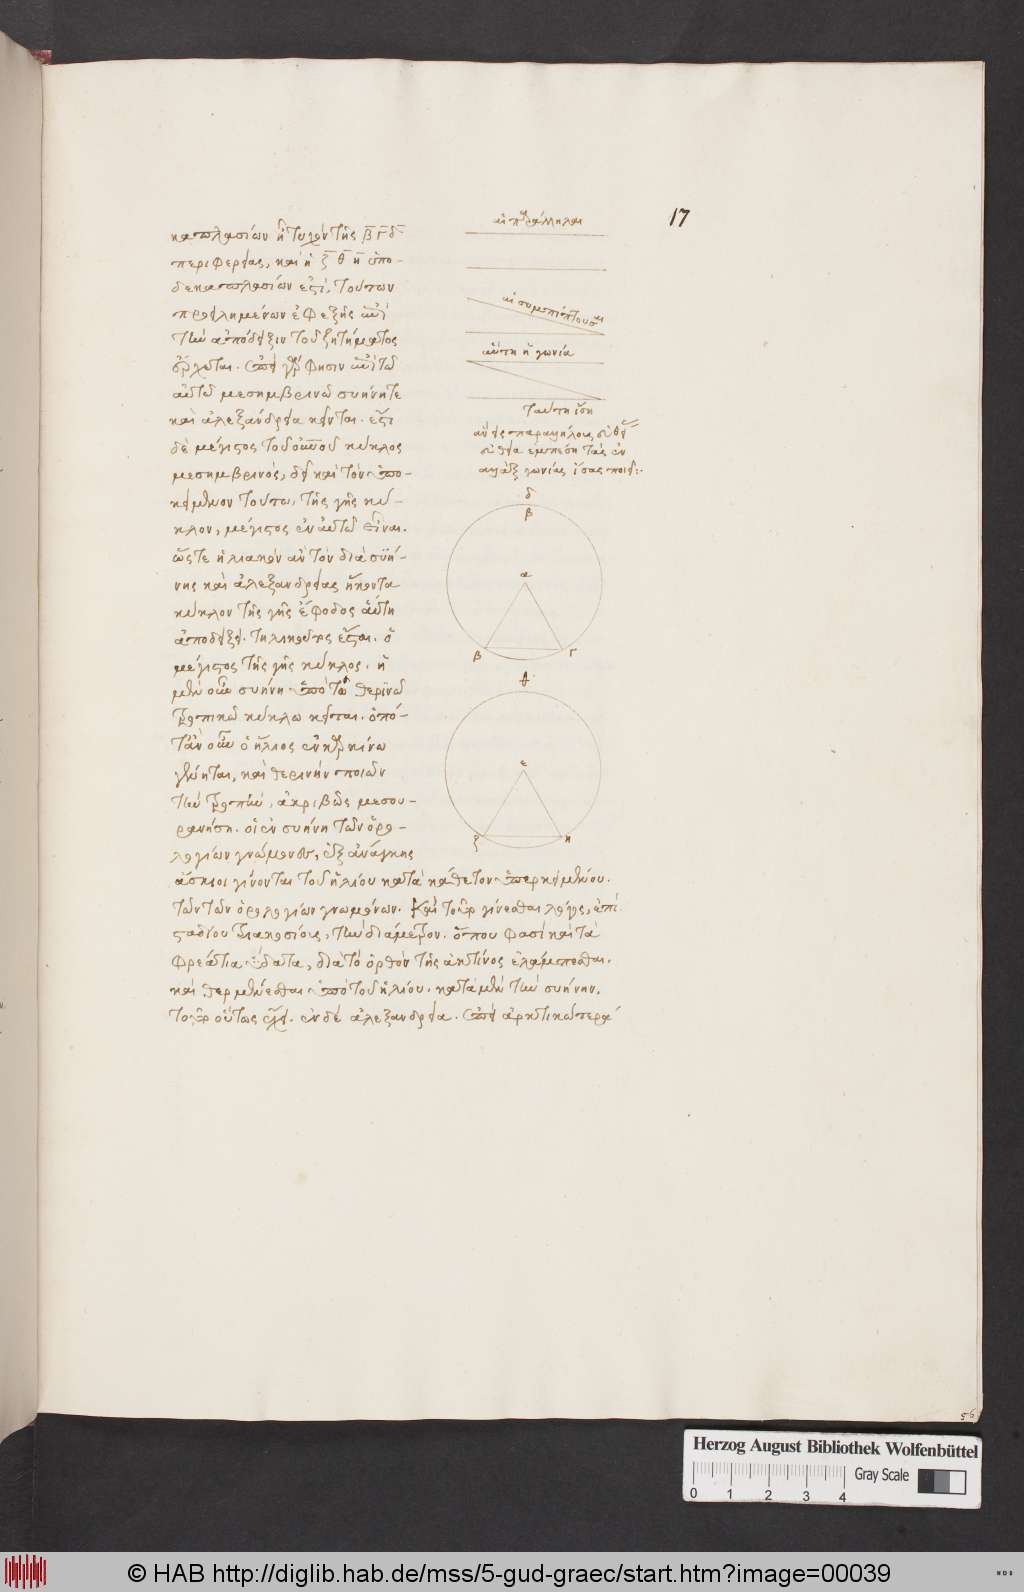 17
αἱ παράλληλοι
καπλασίων ἢ τυχὸν τῆς β Γ δ
περιφερείας, καὶ ἡ ζ θ η ὑπο-
δεκαπλασίων ἐστί, τούτων
προειλημμένων ἐφεξῆς ἐπὶ
τὴν ἀπόδειξιν τοῦ ζητήματος
ἔρχεται. ἐπεὶ γάρ φησιν ἐπὶ τῶ
αὐτῶ μεσημβρινῶ συήνη τε
καὶ ἀλεξάνδρεια κεῖνται. ἔστι
δὲ μέγιστος τοῦ κύκλος
μεσημβρινός, δεῖ καὶ τὸν ὑπο-
κείμενον τούτω, τῆς γῆς κύ-
κλον, μέγιστος ἐν αὐτῶ εἶναι.
ὥστε ἡλιακὸν ἂν τὸν διὰ συή-
νης καὶ ἀλεξανδρείας ἥκοντα
κύκλον τῆς γῆς ἔφοδος αὕτη
ἀποδείξει. τηλικοῦτος ἔσται. ὁ
μέγιστος τῆς γῆς κύκλος. ἡ
μὲν οὖν συήνη ὑπὸ τῶ θερινῶ
τροπικῶ κύκλω κεῖται. ὁπό-
ταν οὖν ὁ ἥλιος ἐν καρκίνω
γένηται, καὶ θερινὴν ποιῶν
τὴν τροπὴν, ἀκριβῶς μεσου-
ρανήση. οἱ ἐν συήνη τῶν ὡρο-
λογίων γνώμονες, ἐξ ἀνάγκης
ἄσκιοι γίνονται τοῦ ἡλίου κατὰ κάθετον ὑπερκειμένου.
τῶν τῶν ὡρολογίων γνωμόνων. καὶ τοῦτο γίνεσθαι λόγος, ἐπὶ
σταδίου τριακοσίους, τὴν διάμετρον. ὅπου φασὶ καὶ τὰ
φρεάτια ὕδατα, διὰ τὸ ὀρθὸν τῆς ἀκτίνος ἐλάμπεσθαι.
καὶ θερμαίνεσθαι ὑπὸ τοῦ ἡλίου. κατὰ μὲν τὴν συήνην.
τοῦτο οὕτως ἔχει. ἐν δὲ ἀλεξανδρεία. ἐπεὶ ἀρκτικωτέρα
αἱ συμπίπτουσαι
αὕτη ἡ γωνία
ταύτη ἴση
εὐθεῖα ἐμπέση τὰς ἐν
αλλὰξ γωνίας ἴσας ποιεῖ:
δ
β
α
β Γ
θ
ε
ζ η
56
Herzog August Bibliothek Wolfenbüttel
0 1 2 3 4
Gray Scale
© HAB http://diglib.hab.de/mss/5-gud-graec/start.htm?image=00039